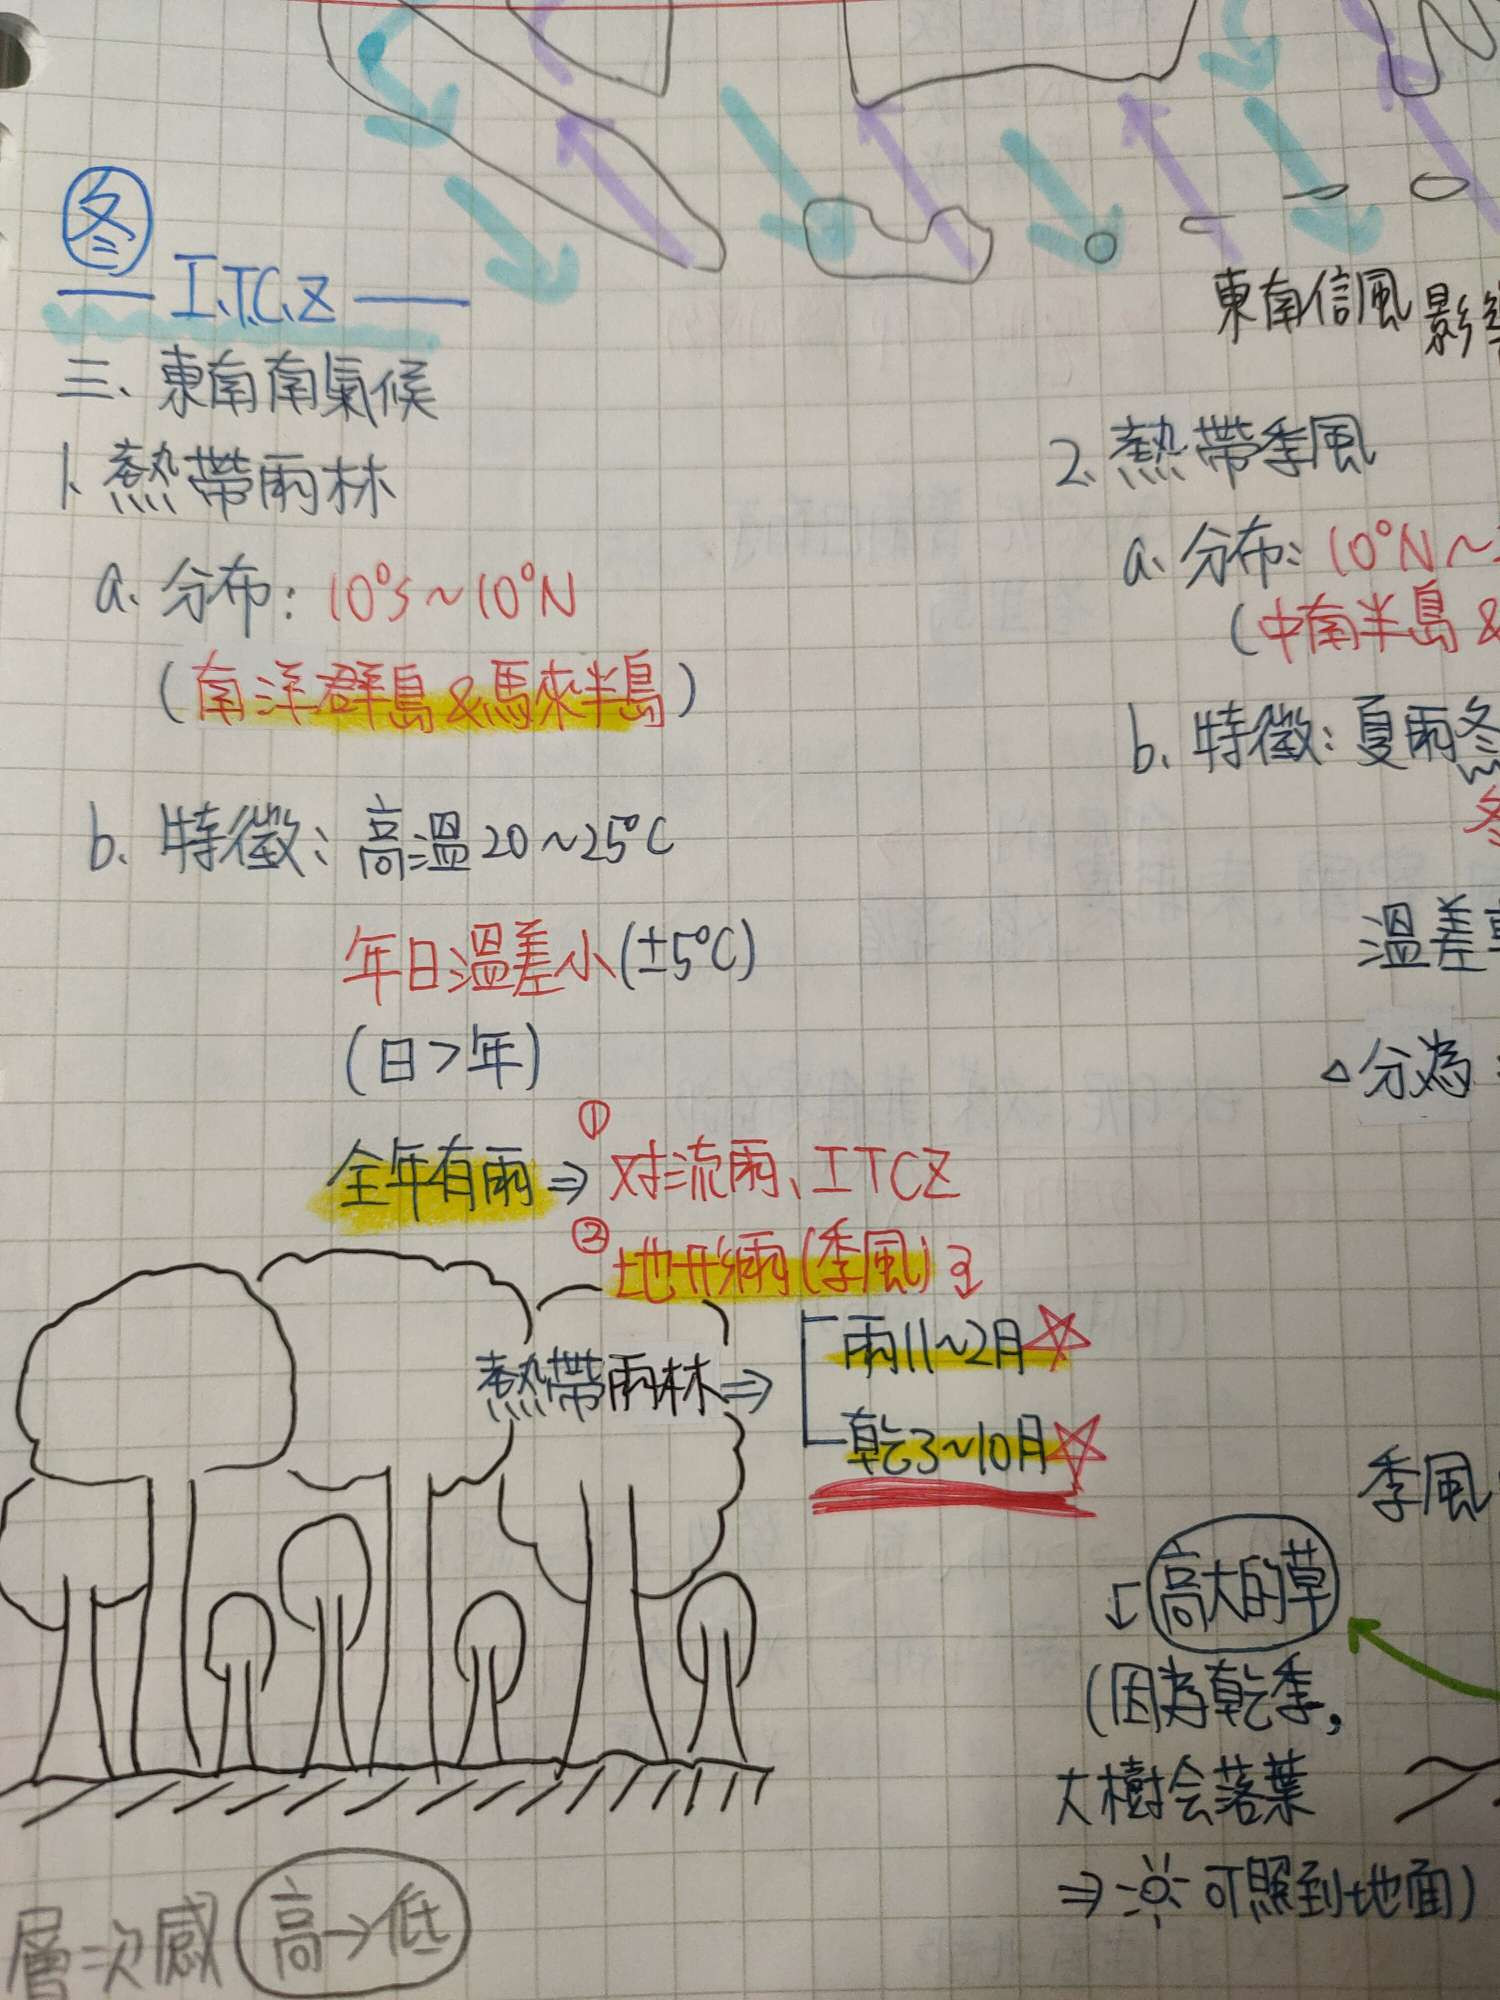 冬
I.T.C.Z
東南信風影
三、東南南氣候
1. 熱帶雨林
a. 分布: 10°S~10°N
(南洋群島&馬來半島)
b. 特徵: 高溫20~25°C
年日溫差小(±5°C)
(日>年)
全年有雨⇒①对流雨、ITCZ
②地形雨(季風)
熱帶雨林⇒
雨11~2月☆
乾3~10月☆
層次感 高→低
2. 熱帶季風
a. 分布: 10°N~
(中南半島&
b. 特徵: 夏雨冬
冬
溫差
△分為
季風
高大的草
(因為乾季,
大樹会落葉
⇒☼可照到地面)